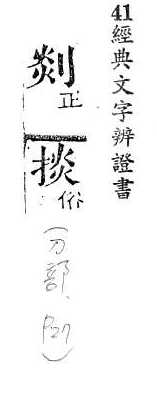 41經典文字辨證書
剡正
掞俗
(刀部、P27)